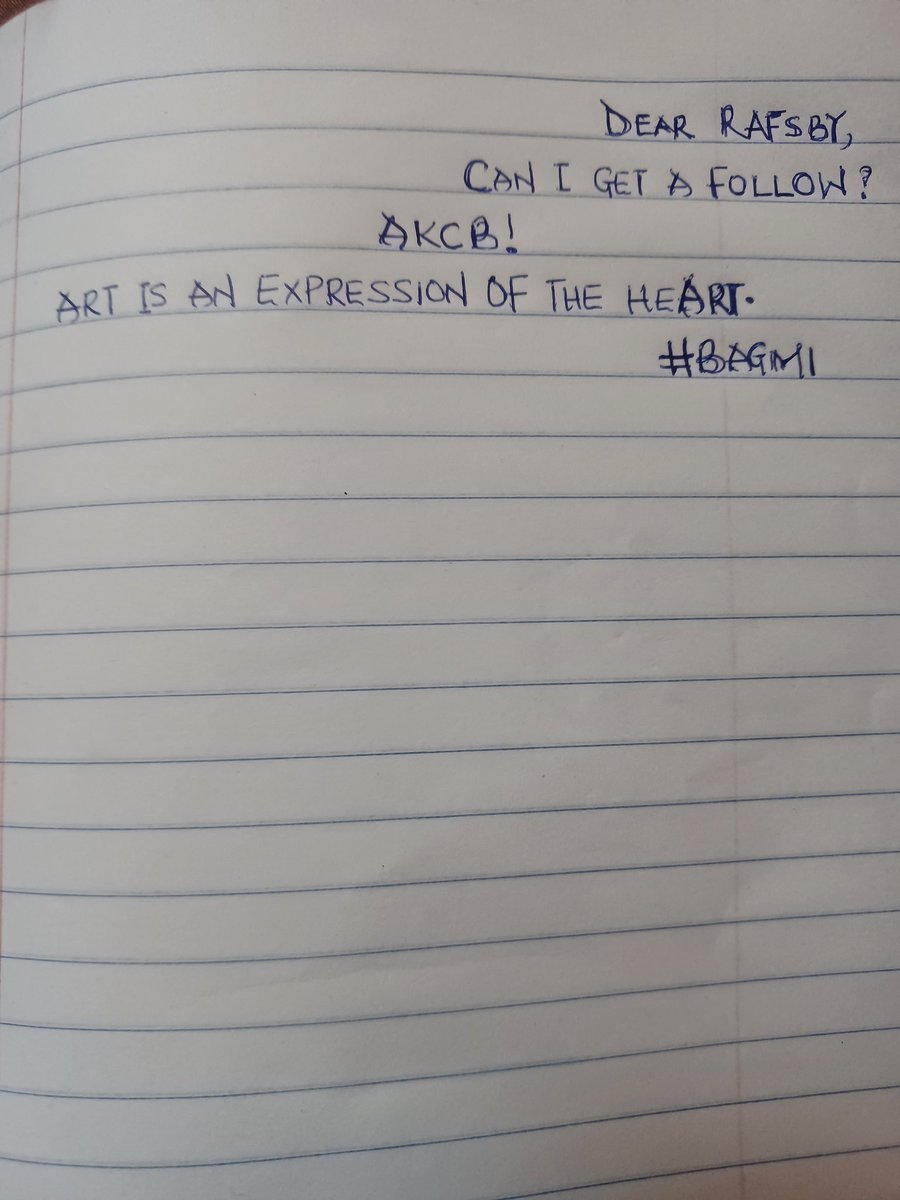 DEAR RAFSBY,
CAN I GET A FOLLOW?
AKCB!
ART IS AN EXPRESSION OF THE HEART.
#BAGMI